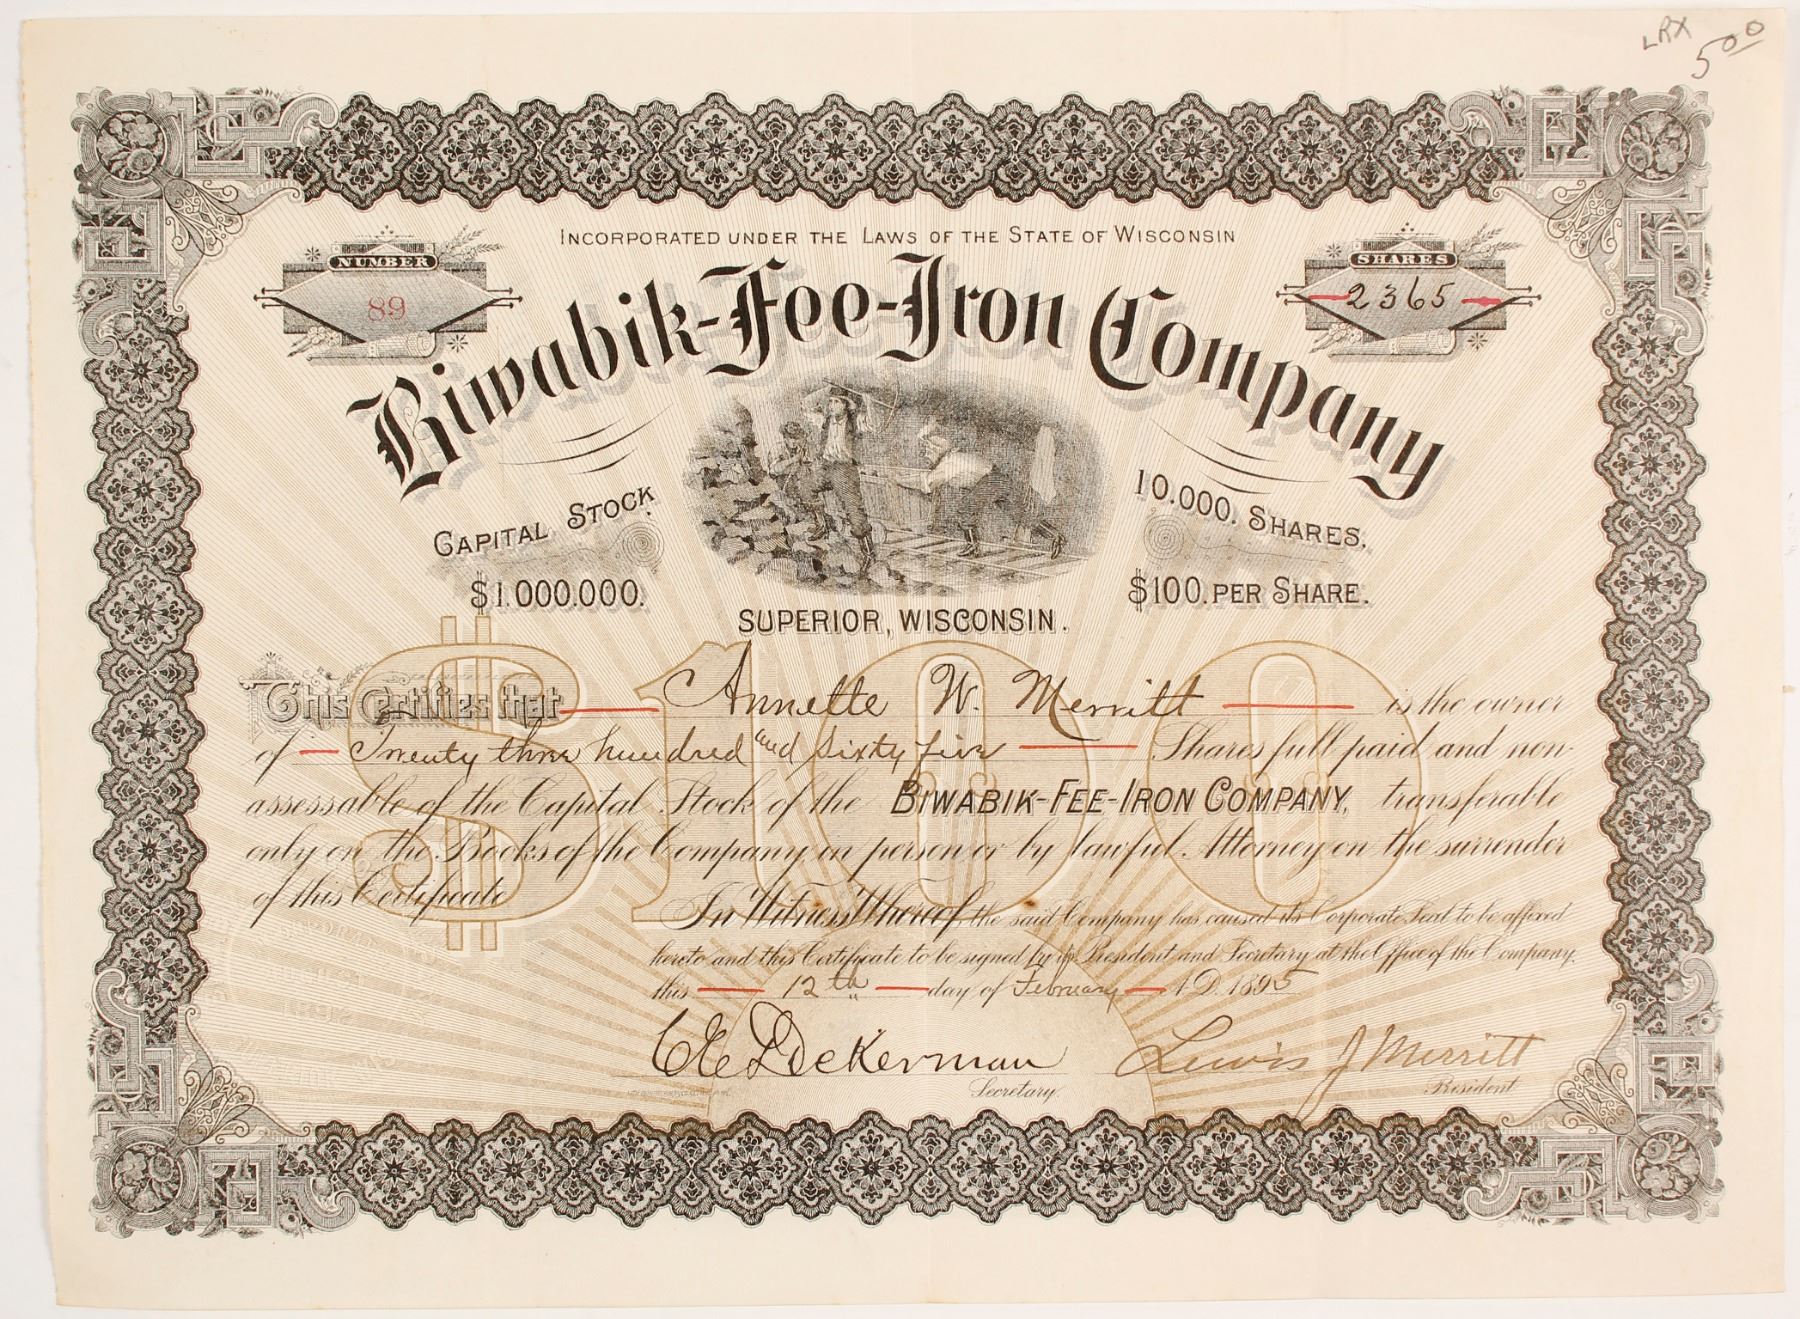 LRX 5 00
INCORPORATED UNDER THE LAWS OF THE STATE OF WISCONSIN
NUMBER
89
SHARES
2365
Biwabik-Fee-Iron Company
CAPITAL STOCK
$1.000.000.
10.000. SHARES.
$100. PER SHARE.
SUPERIOR, WISCONSIN.
$100
This Certifies that Annette W. Merritt is the owner
of Twenty three hundred and sixty five Shares full paid and non-
assessable of the Capital Stock of the BIWABIK-FEE-IRON COMPANY, transferable
only on the Books of the Company in person or by lawful Attorney on the surrender
of this Certificate
In Witness Whereof, the said Company has caused its Corporate Seal to be affixed
hereto and this Certificate to be signed by its President and Secretary at the Office of the Company,
this 12th day of February A.D. 1895
Lewis J Merritt
Secretary.
President